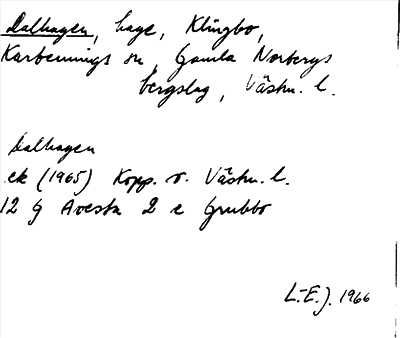 Dalhagen, hage, Klingbo,
Karbennings sn, Gamla Norbergs
bergslag, Västm. l.
Dalhagen
ek (1965) Kopp. o. Västm. l.
12 G Avesta 2 e Grubbo
L-E. J. 1966